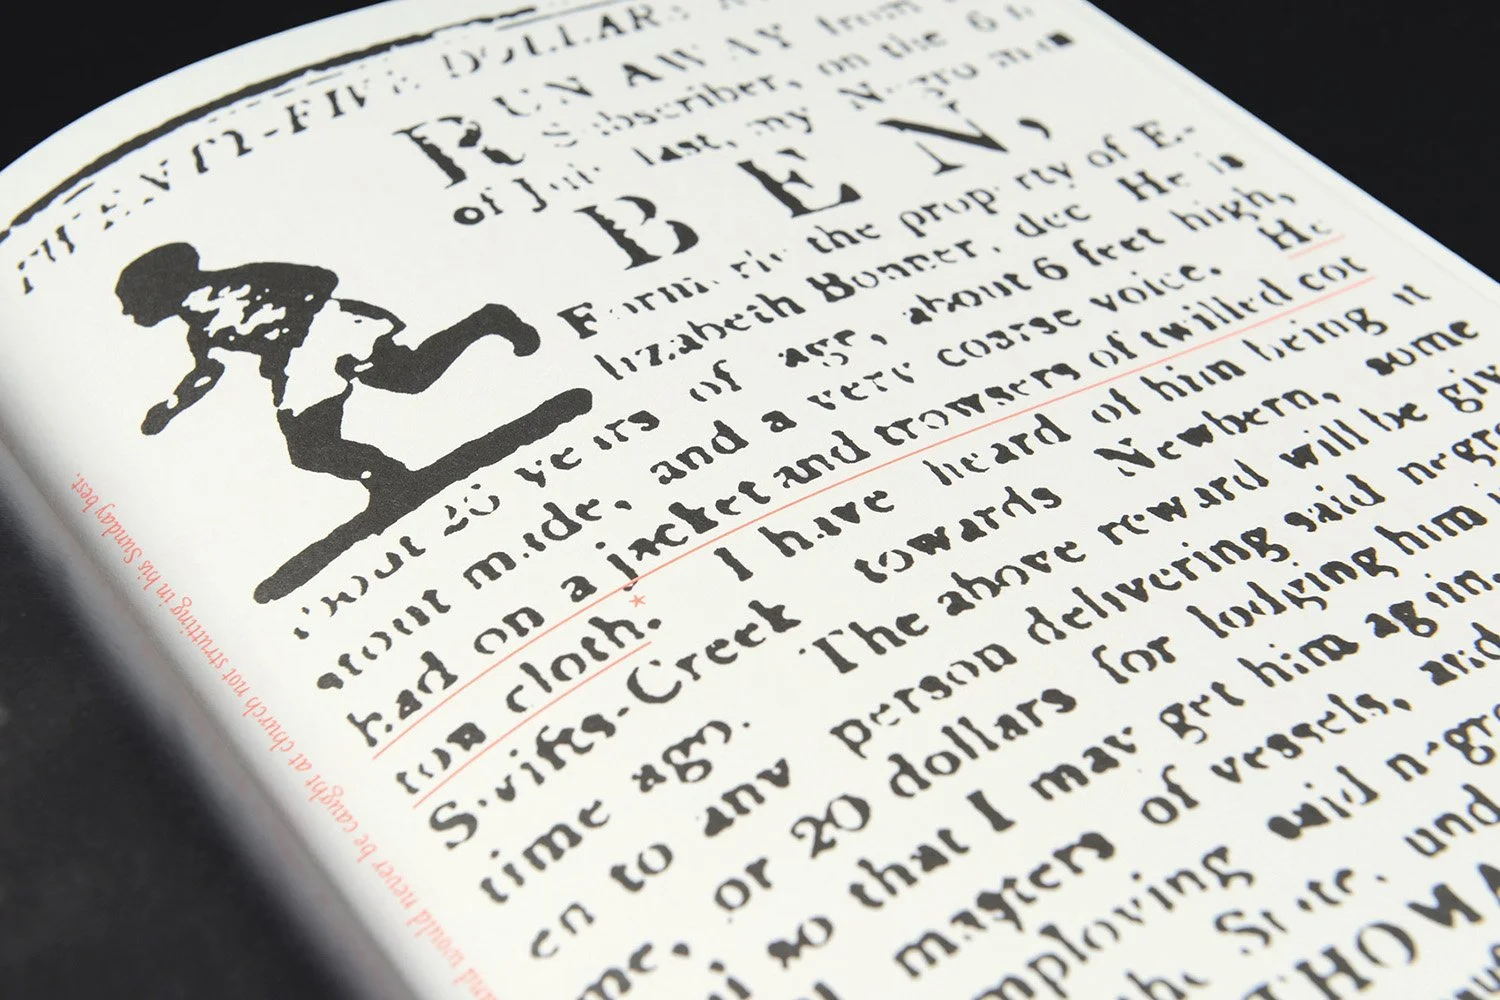 TWENTY-FIVE DOLLARS
RUN AWAY from
Subscriber, on the 6
of June last, my Negro man
BEN,
Formerly the property of E-
lizabeth Bonner, dec He is
about 26 years of age, about 6 feet high,
stout made, and a very coarse voice. He
had on a jacket and trowsers of twilled cot
ton cloth. * I have heard of him being it
Swifts-Creek towards Newbern, some
time ago. The above reward will be giv
en to any person delivering said negro
me, or 20 dollars for lodging him
so that I may get him again.
masters of vessels, and
mploying said negro
the State, und
THOMA
and would never be caught at church not strutting in his Sunday best.